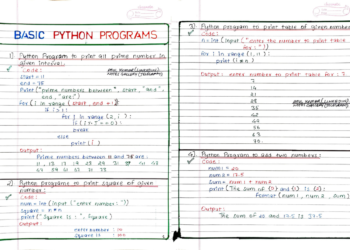 BASIC PYTHON PROGRAMS
1) Python Program to print all prime number in
given Interval:
Code:
start = 11
end = 75
Print ("Prime numbers between", start, "and",
end, "are:")
for i in range (start, end + 1):
if i > 1:
for j in range (2, i):
if (i % j == 0):
break
else
print (i)
Output:
Prime numbers between 11 and 75 are:
2) Python Program to print square of given
number:
Code:
num = int (input ("Enter number"))
square = n*n
print ("Square is:", Square)
Output:
Enter number
Square is
3) Python Program to print table of given number
Code:
n = int (input ("enter the number to print table
for:"))
for i in range (1, 11):
print (i*n)
Output: enter number to print table for: 7
7
14
21
28
35
42
49
56
63
70
4) Python Program to add two numbers:
Code:
num2 = 17.5
Sum = num1 + num2
print (The Sum of {0} and {1} is {2}:
format (num1, num2, Sum)
Output:
The Sum of 20 and 17.5 is 37.5